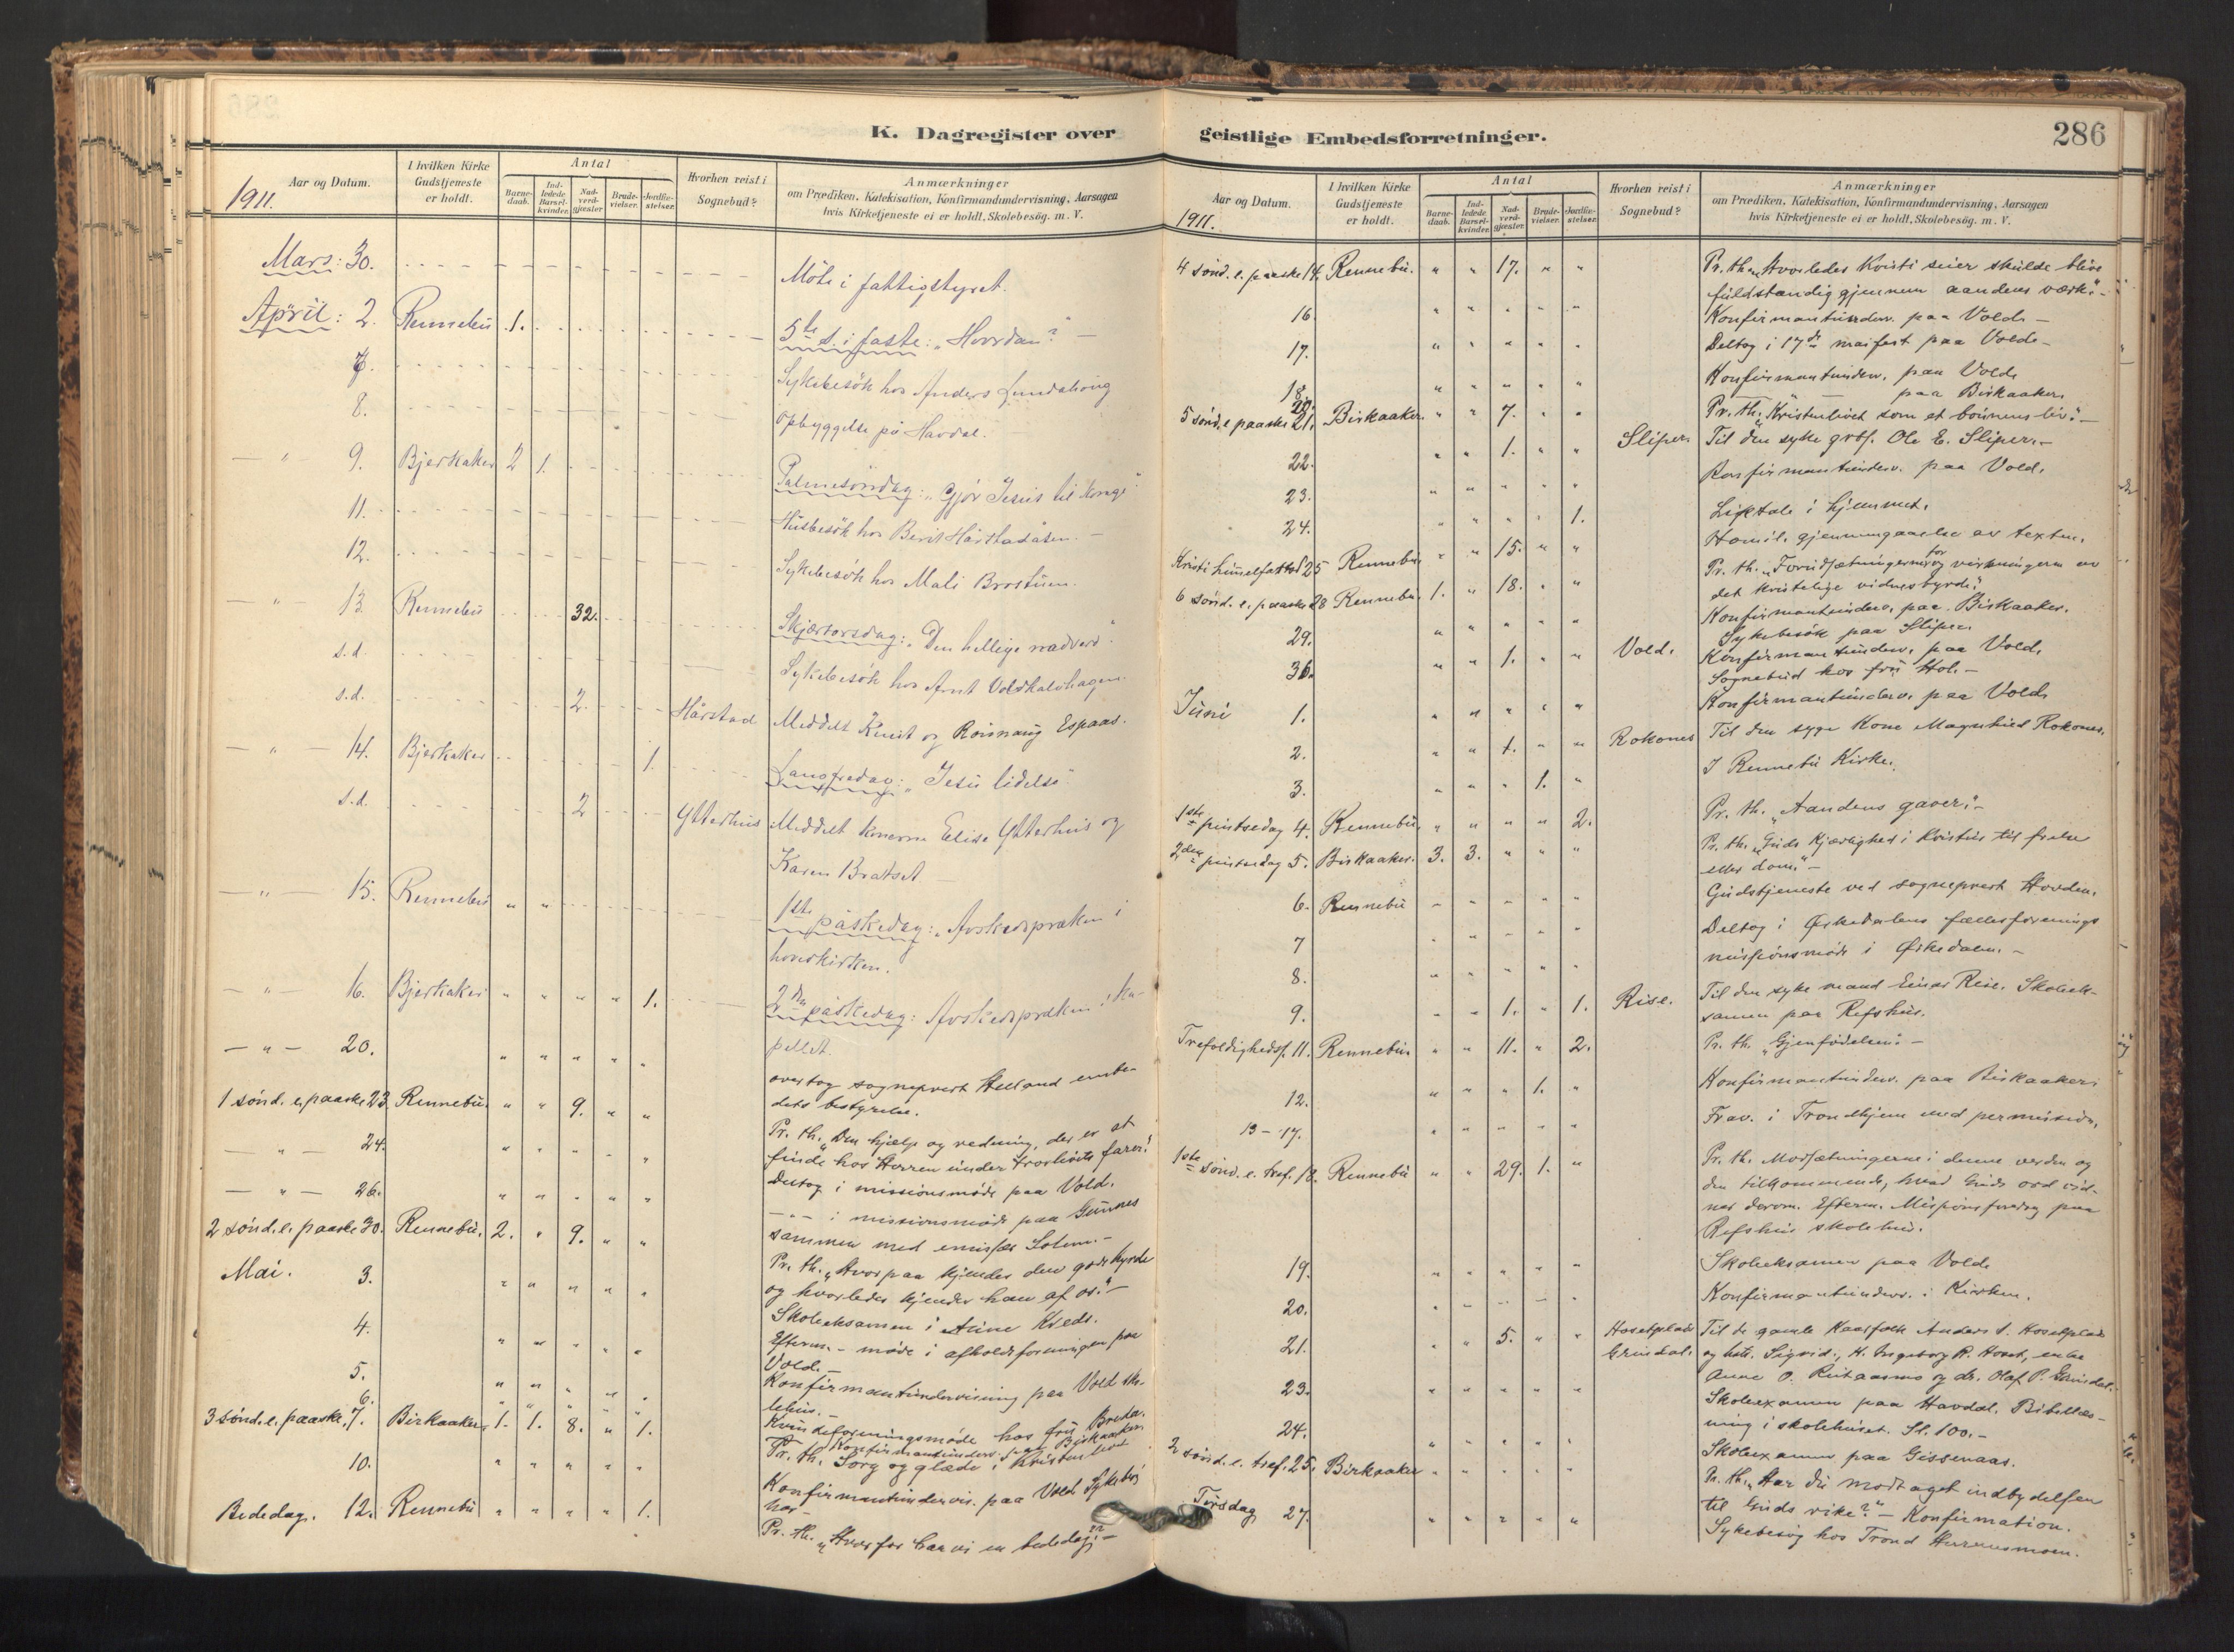 K. Dagregister over
Aar og Datum.
I hvilken Kirke Gudstjeneste er holdt.
Antal
Barne-daab.
Ind-ledede Barsel-kvinder.
Nad-verd-gjæster.
Brude-vielser.
Jordfæ-stelser.
Hvorhen reist i Sognebud?
Anmærkninger
om Prædiken, Katekisation, Konfirmandundervisning, Aarsagen
hvis Kirketjeneste ei er holdt, Skolebesög. m. V.
1911.
Mars: 30. Möte i fattigstyret.
April: 2. Rennebu 1. 5te s. i faste: „Hvordan?" —
7. Sykebesök hos Anders Lundahoug
8. Opbyggelse på Havdal.
— " — 9. Bjerkaker 2 1. Palmesöndag: „Gjör Jesus til konge".
11. Husbesök hos Berit Hårstadåsen. —
12. Sykebesök hos Mali Brostuen.
— " — 13. Rennebu 32. Skjærtorsdag: „Den hellige nadverd".
s.d. Sykebesök hos Arnt Voldkalvhagen.
s.d. 2. Hårstad Meddelt Knut og Rönnaug Espaas.
— " — 14. Bjerkaker 1. Langfredag: „Jesu lidelse"
s.d. 2 Ytterhus Meddelt konerne Elise Ytterhus og
Karen Bratset —
— " — 15. Rennebu " " 1ste påskedag: Avskedspræken i
hovedkirken.
— " — 16. Bjerkaker " " " " 1. 2den påskedag: Avskedspræken i ka-
pellet.
— " — 20. " " " " " overtog sogneprest Helland embe-
dets bestyrelse.
1 sønd. e. paaske 23 Rennebu. " " 9. " " Pr. th. „Den hjælp og redning, der er at
finde hos Herren under troslivets farer."
— " — 24. " " " " " Deltog i missionsmøde paa Vold.
— " — 26. " " " " " — " — i missionsmøde paa Gunnes
sammen med emissær Solem. —
2 sønd. e. paaske 30. Rennebu. 2. " 9. " " Pr. th. „Hvorpaa kjendes den gode hyrde
og hvorledes kjender han af os." —
Mai. 3. " " " " " Skoleeksamen i Aune Kreds.
4. " " " " " Efterm. – møde i afholdsforeningen paa
Vold. —
5. " " " " " Konfirmantundervisning paa Vold sko-
lehus. —
6. " " " " " Kvindeforeningsmøde hos fru Breda.
Konfirmantunderv. paa Birkaaker.
3 sønd. e. paaske. 7. Birkaaker. 1. 1. 8. " 1. Pr. th. Sorg og glæde i Kristenlivet
10. " " " " " Konfirmantundervis. paa Vold Sykebes.
hos —
Bededag. 12. Rennebu " " " " 1. Pr. th. „Hvorfor har vi en bededag?" —
geistlige Embedsforretninger.
286
Aar og Datum.
I hvilken Kirke Gudstjeneste er holdt.
Antal
Barne-daab.
Ind-ledede Barsel-kvinder.
Nad-verd-gjæster.
Brude-vielser.
Jordfæ-stelser.
Hvorhen reist i Sognebud?
Anmærkninger
om Prædiken, Katekisation, Konfirmandundervisning, Aarsagen
hvis Kirketjeneste ei er holdt, Skolebesög. m. V.
1911.
4 sønd. e. paaske 14. Rennebu. " " 17. " " Pr. th. „Hvorledes Kristi seier skulde blive
fuldstændig gjennem aandens værk." —
16. " " " " " Konfirmantunderv. paa Vold. —
17. " " " " " Deltog i 17de maifest paa Vold. —
18. " " " " " Konfirmantunderv. paa Vold.
20. — " — paa Birkaaker.
5 sønd. e paaske 21. Birkaaker. " " 7. " " Pr. th. „Kristenlivet som et bönnens liv." —
22. " " 1. " " Sliper. Til den syke grbf. Ole E. Sliper. —
23. " " " " " Konfirmantunderv. paa Vold.
24. " " " " 1. Ligtale i hjemmet.
Kristi himmelfartsd. 25 Rennebu " " 15. " " Homil. gjennemgaaelse av texten.
6 sønd. e. paaske 28 Rennebu. 1. " 18. " " Pr. th. „Forudsætningerne for og virkningerne av
det kristelige vidnesbyrd."
29. " " " " " Konfirmantunderv. paa Birkaaker.
Sykebesök paa Sliper.
30. " " 1. " " Vold. Konfirmantunderv. paa Vold.
Sognebud hos fru Hol. —
Juni 1. " " " " " Konfirmantunderv. paa Vold.
2. " " 1. " " Rokones Til den syge Kone Magnhild Rokones.
3. " " " 1. " I Rennebu Kirke.
1ste pintsedag 4. Rennebu. " " " " 2. Pr. th. „Aandens gaver." —
2den pintsedag 5. Birkaaker. 3. 3. " " " Pr. th. „Guds Kjærlighed i Kristus til frelse
eller dom." —
6. Rennebu " " " " " Gudstjeneste ved sogneprest Hovden.
7 " " " " " Deltog i Ørkedalens fællesforenings
8. " " " " " missionsmøde i Ørkedalen. —
9. " " 1. " 1. Rise. Til den syke mand Einar Rise. Skoleek-
samen paa Refshus.
Trefoldighedsf. 11. Rennebu. " " 11. " 2. Pr. th. „Gjenfödelsen." —
12. " " " 1. " Konfirmantunderv. paa Birkaaker.
13 – 17. " " " " " Frav. i Trondhjem med permission.
1ste sønd. e. tref. 18. Rennebu " " 29. 1. " Pr. th. Modsætningerne i denne verden og
den tilkommende, hvad Guds ord vid-
ner derom. Efterm. Missionsforedrag paa
Refshus skolehus.
19. " " " " " Skoleeksamen paa Vold.
20. " " " " " Konfirmantunderv. i Kirken.
21. " " 5. " " Hosetplads Grindal. Til de gamle Kaarfolk Anders S. Hosetplads
og hst. Sigrid., H. Ingeborg R. Hoset, enke
Anne O. Reitaasmo og do. Olaf P. Grindal.
23. " " " " " Skoleexamen paa Havdal. Bibellæs-
ning i skolehuset. Sl. 100. —
24. " " " " " Skoleexamen paa Gissenaas.
2 sønd. e. tref. 25. Birkaaker " " " " " Pr. th. „Har du modtaget indbydelsen
til Guds rike?" — Konfirmation.
Tirsdag 27. " " " " " Sykebesög hos Trond Hurunesmoen.